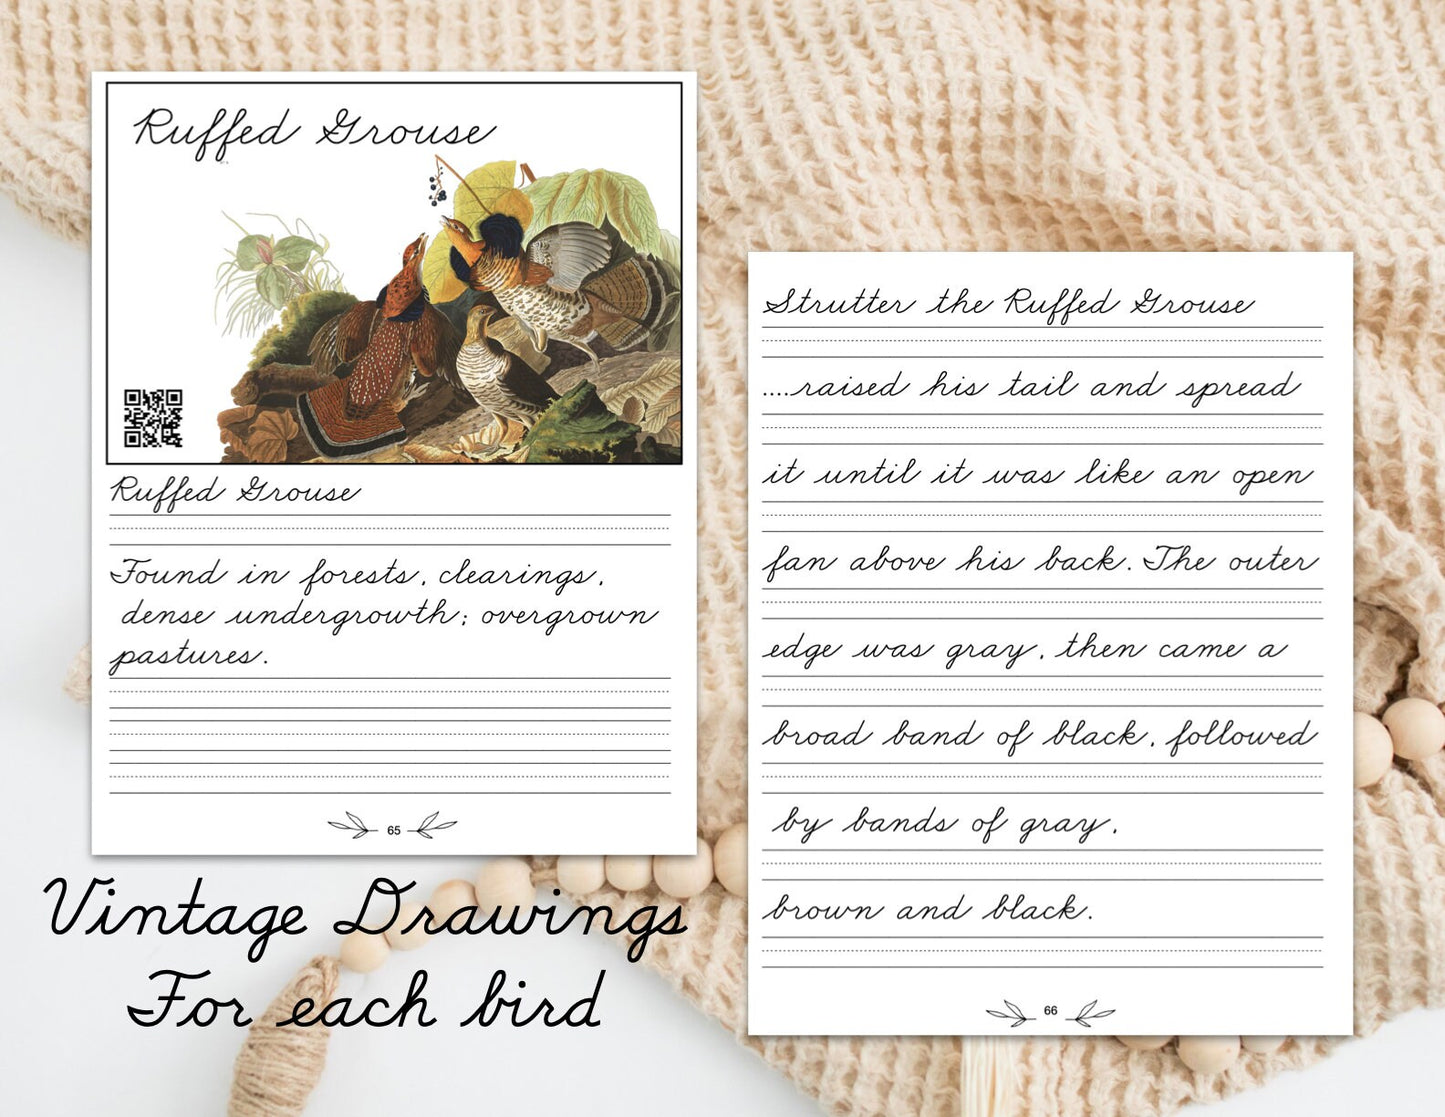 Ruffed Grouse
Ruffed Grouse
Found in forests, clearings,
dense undergrowth; overgrown
pastures.
65
Strutter the Ruffed Grouse
....raised his tail and spread
it until it was like an open
fan above his back. The outer
edge was gray, then came a
broad band of black, followed
by bands of gray,
brown and black.
66
Vintage Drawings
For each bird